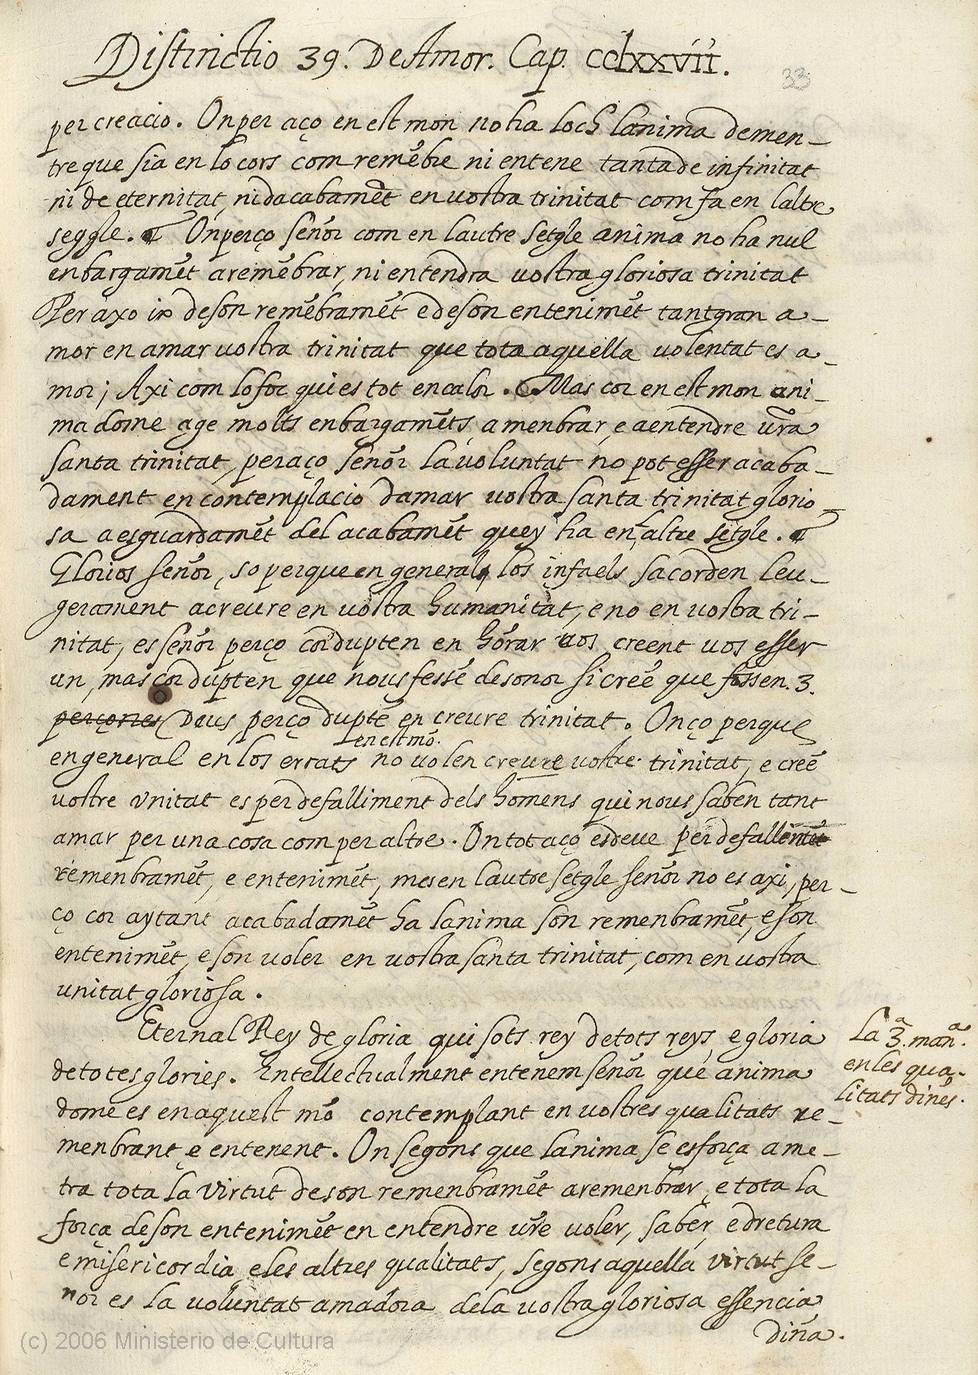 Distinctio 39. De Amor. Cap. cclxxvii.
33
per creacio. On per aço en est mon no ha loch lanima demen_
tre que sia en lo cors com remēbre ni entene tanta de infinitat
ni de eternitat, ni dacabamēt en vostra trinitat com fa en laltre
seggle. ¶ On perço señor com en lautre setgle anima no ha nul
enbargamēt a remēbrar, ni entendra vostra gloriosa trinitat
Per axo de son remēbramēt e de son entenimēt tant gran a_
mor en amar vostra trinitat que tota aquella volentat es a_
mor; Axi com lo foc qui es tot en calor. ¶ Mas cor en est mon ani_
ma dome age molts enbargamēts a menbrar, e a entendre vr̃a
santa trinitat, per aço señor la voluntat no pot esser acaba_
dament en contemplacio damar vostra santa trinitat glorio_
sa a esguardamēt del acabamēt que y ha en laltre setgle. ¶
Glorios señor, so perque en general los infaels sacorden leu_
gerament a creure en vostra humanitat, e no en vostra tri_
nitat, es señor perço cor dupten en hōrar vos creent vos esser
un, mas cor dupten que nous fesse desonor si creē que fossen .3.
perçones Deus, perço duptē en creure trinitat. On ço perque
en est mō.
en general en los errats no volen creure vostre trinitat, e creē
vostre vnitat es per defalliment dels homens qui nous saben tant
amar per una cosa com per altre. On tot aço esdeve per defallimēt
remenbramēt, e entenimēt, mes en lautre setgle señor no es axi, per_
ço cor aytant acabadamēt ha lanima son remenbramēt, e son
entenimēt, e son voler en vostra santa trinitat, com en vostra
unitat gloriosa.
Eternal Rey de gloria qui sots rey de tots reys, e gloria
de totes glories. Entellectualment entenem señor que anima
dome es en aquest mō contemplant en vostres qualitats re_
menbrant e entenent. On segons que lanima se esforça a me_
tra tota la virtut de son remenbramēt a remenbrar, e tota la
força de son entenimēt en entendre vr̃e voler, saber, e dretura
e misericordia e les altres qualitats, segons aquella virtut se_
nor es la voluntat amadora de la vostra gloriosa essencia
diña.
La 3.ª man.ª
en les qua_
litats diñes.
(c) 2006 Ministerio de Cultura